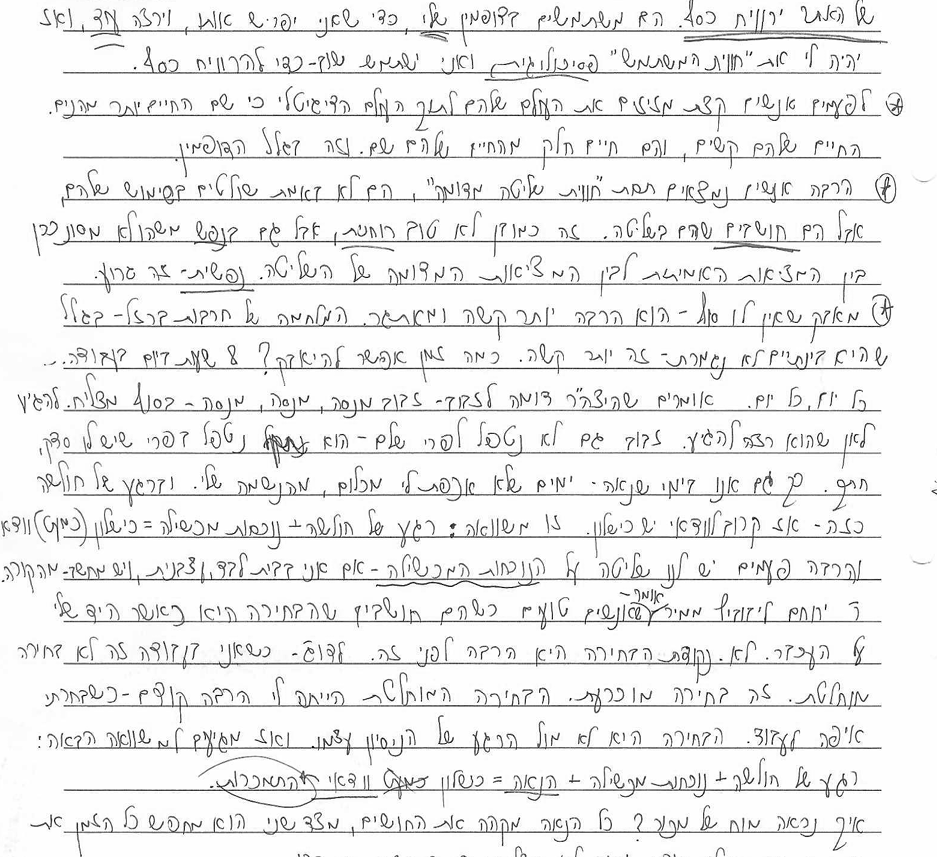 של האתר ירוויח כסף. הם משתמשים בדופמין שלי, כדי שאני יפריש אותו, וירצה עוד, ואז
יהיה לי את "חווית המשתמש" פסיכולוגית ואני ישתמש שוב - כדי להרוויח כסף.
לפעמים אנשים קצת מזיזים את העולם שלהם לתוך העולם הדיגיטלי כי שם החיים יותר מהנים.
החיים שלהם קשים, והם חיים חלק מהחיים שלהם שם. וזה בגלל הדופמין.
הרבה אנשים נמצאים תחת "חווית שליטה מדומה", הם לא באמת שולטים בשימוש שלהם,
אבל הם חושבים שהם בשליטה. זה כמובן לא טוב רוחנית, אבל גם בנפש משהו לא מסונכרן
בין המציאות האמיתית לבין המציאות המדומה של השליטה. נפשית - זה גרוע.
מאבק שאין לו סוף - הוא הרבה יותר קשה ומאתגר. המלחמה של חרבות ברזל - בגלל
שהיא בינתיים לא נגמרת - זה יותר קשה. כמה זמן אפשר להיאבק? 8 שעות ביום בעבודה...
כל יום, כל יום. אומרים שהיצה"ר דומה לזבוב - זבוב מנסה, מנסה, מנסה - בסוף מצליח. להגיע
לאן שהוא רצה להגיע. זבוב גם לא נטפל לפרי שלם - הוא נטפל בפרי שיש לו סדק,
חתך. כך גם אנו בימי שנאה - ימים שלא אכפת לי מכלום, מהנשמה שלי. וברגע של חולשה
כזה - אז קרוב לוודאי יש כישלון. זו משוואה: רגע של חולשה + נוכחות מכשילה = כישלון (כמעט) וודאי
והרבה פעמים יש לנו שליטה על הנוכחות המכשילה - אם אני בבית לבד, עצבנית, ויש מחשב - מה קורה.
ר' ירוחם ליבוביץ ממיר אומר - שאנשים טועים כשהם חושבים שהבחירה היא כאשר היד שלי
על העכבר. לא. נקודת הבחירה היא הרבה לפני זה. לדוג' - כשאני בעבודה זה לא בחירה
מוחלטת. זה בחירה מוכרעת. הבחירה המוחלטת הייתה לי הרבה קודם - כשבחרתי
איפה לעבוד. הבחירה היא לא מול הרגע של הניסיון עצמו. ואז מגיעים למשוואה הבאה:
רגע של חולשה + נוכחות מכשילה + הנאה = כשלון כמעט וודאי והתמכרות.
איך נראה מוח של מכור? כל הנאה מקהה את החושים, מצד שני הוא מחפש כל הזמן את